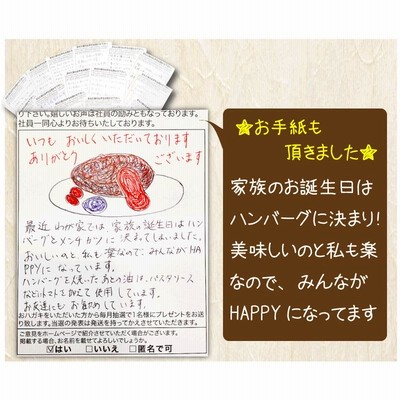 り下さい。嬉しいお声は社員の励みともなっております。
社員一同心よりお待ちいたしております。
いつも おいしく いただいております
ありがとう ございます
最近 わが家では、家族の誕生日はハン
バーグとメンチカツに 決まってしまいました。
おいしいのと、私も楽なので、みんながHA
PPYに なっています。
ハンバーグを焼いたあとの油は、パスタソース
などにトマトを加えて使用しています。
お友達にも お勧めしています。
◎おハガキをいただいた方から毎月抽選で1名様にプレゼントをお送
り致します。当選の発表は発送を持ってかえさせていただきます。
ご意見をホームページで紹介させていただく場合がございます。
掲載する場合、お名前を載せてよろしいでしょうか。
☑はい □いいえ □匿名で可
★お手紙も
頂きました★
家族のお誕生日は
ハンバーグに決まり!
美味しいのと私も楽
なので、みんなが
HAPPYになってます